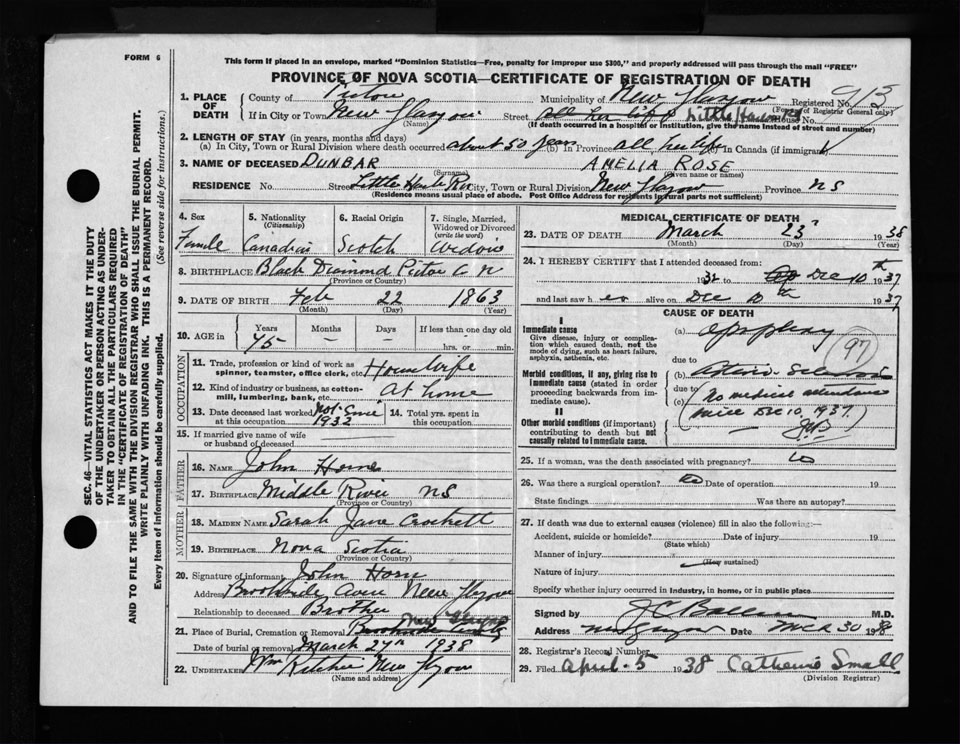 FORM 6
This form if placed in an envelope, marked "Dominion Statistics—Free, penalty for improper use $300," and properly addressed will pass through the mail "FREE"
PROVINCE OF NOVA SCOTIA—CERTIFICATE OF REGISTRATION OF DEATH
1. PLACE OF DEATH
County of Pictou Municipality of New Glasgow Registered No. 913
(For use of Registrar General only)
If in City or Town New Glasgow Street all her life Little Harbor Rd House No.
(Name) (If death occurred in a hospital or institution, give the name instead of street and number)
2. LENGTH OF STAY (in years, months and days)
(a) In City, Town or Rural Division where death occurred about 50 years (b) In Province all her life (c) In Canada (if immigrant)
3. NAME OF DECEASED DUNBAR AMELIA ROSE
(Surname) (Given name or names)
RESIDENCE No. Street Little Harb Rd City, Town or Rural Division New Glasgow Province NS
(Residence means usual place of abode. Post Office Address for residents in rural parts not sufficient)
4. Sex
Female
5. Nationality (Citizenship)
Canadian
6. Racial Origin
Scotch
7. Single, Married, Widowed or Divorced (write the word)
Widow
8. BIRTHPLACE Black Diamond Pictou C N
(Province or Country)
9. DATE OF BIRTH Feb 22 1863
(Month) (Day) (Year)
10. AGE in Years Months Days If less than one day old
75 — — hrs. or min.
OCCUPATION
11. Trade, profession or kind of work as spinner, teamster, office clerk, etc. Housewife
12. Kind of industry or business, as cotton-mill, lumbering, bank, etc. at home
13. Date deceased last worked at this occupation Not since 1932
14. Total yrs. spent in this occupation
15. If married give name of wife or husband of deceased
FATHER
16. NAME John Horne
17. BIRTHPLACE Middle River NS
(Province or Country)
MOTHER
18. MAIDEN NAME Sarah Jane Crockett
19. BIRTHPLACE Nova Scotia
(Province or Country)
20. Signature of informant John Horn
Address Brookside Ave New Glasgow
Relationship to deceased Brother
21. Place of Burial, Cremation or Removal New Glasgow
Date of burial or removal March 27th 1938
22. UNDERTAKER Wm Ritchie New Glasgow
(Name and address)
MEDICAL CERTIFICATE OF DEATH
23. DATE OF DEATH March 23 1938
(Month) (Day) (Year)
24. I HEREBY CERTIFY that I attended deceased from:
32 to Dec 10th 1937
and last saw her alive on Dec 10th 1937
CAUSE OF DEATH
I
Immediate cause
Give disease, injury or complication which caused death, not the mode of dying, such as heart failure, asphyxia, asthenia, etc.
(a) Apoplexy
97
due to
Morbid conditions, if any, giving rise to immediate cause (stated in order proceeding backwards from immediate cause).
(b) Arterio-sclerosis
due to
(c) No medical attendance since Dec 10, 1937.
II
Other morbid conditions (if important) contributing to death but not causally related to immediate cause.
25. If a woman, was the death associated with pregnancy? no
26. Was there a surgical operation? no Date of operation 19
State findings Was there an autopsy?
27. If death was due to external causes (violence) fill in also the following:—
Accident, suicide or homicide? Date of injury 19
(State which)
Manner of injury
(How sustained)
Nature of injury
Specify whether injury occurred in industry, in home, or in public place
Signed by M.D.
Address New Glasgow Date Mch 30 1938
28. Registrar's Record No.
29. Filed April 5 1938 Catherine Small
(Division Registrar)
SEC. 46—VITAL STATISTICS ACT MAKES IT THE DUTY
OF THE UNDERTAKER OR PERSON ACTING AS UNDERTAKER TO OBTAIN ALL THE PARTICULARS REQUIRED
IN THE "CERTIFICATE OF REGISTRATION OF DEATH"
AND TO FILE THE SAME WITH THE DIVISION REGISTRAR WHO SHALL ISSUE THE BURIAL PERMIT.
WRITE PLAINLY WITH UNFADING INK. THIS IS A PERMANENT RECORD.
Every item of information should be carefully supplied. (See reverse side for instructions.)